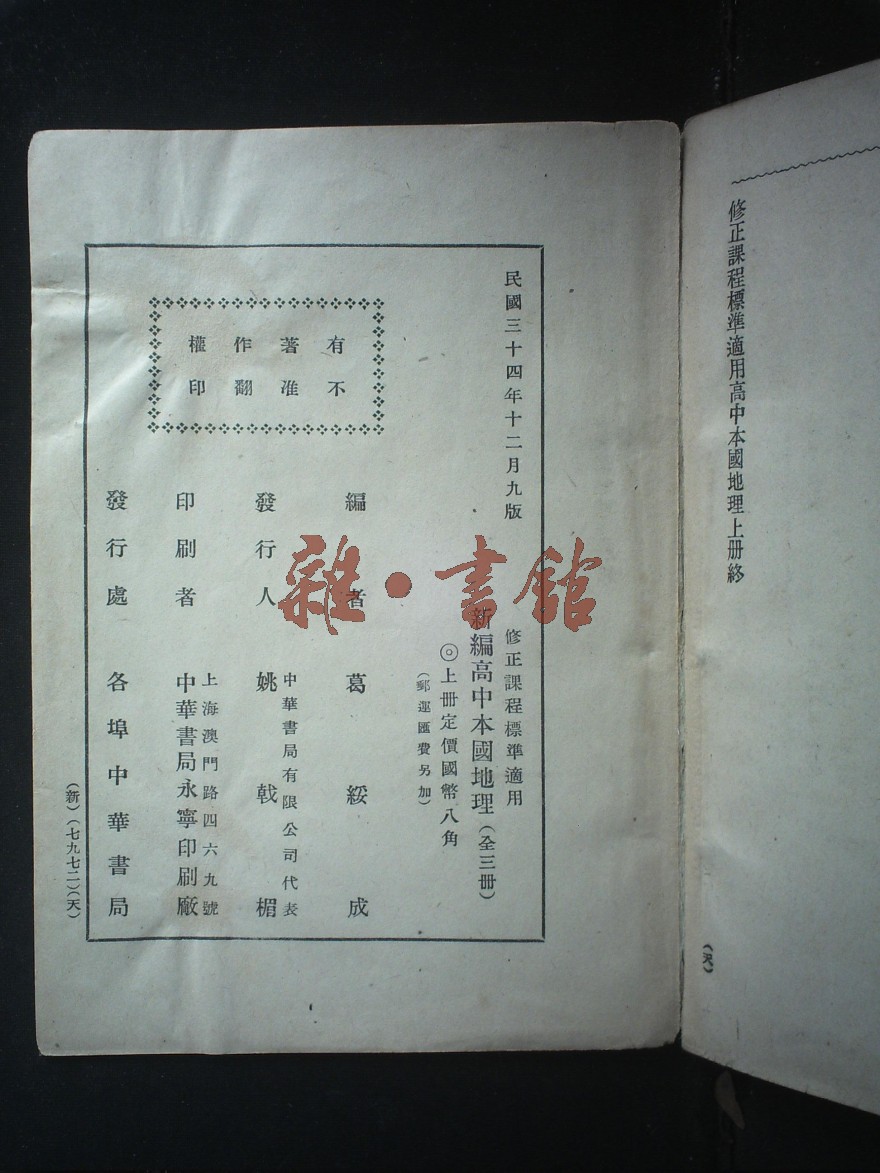 修正課程標準適用高中本國地理上册終
(天)
民國三十四年十二月九版
修正課程標準適用
新編高中本國地理(全三册)
◎上册定價國幣八角
(郵運匯費另加)
有著作權
不准翻印
編者 葛綏成
發行人 中華書局有限公司代表
姚戟楣
印刷者 上海澳門路四六九號
中華書局永寧印刷廠
發行處 各埠中華書局
(新)(七九七二)(天)
雜·書館